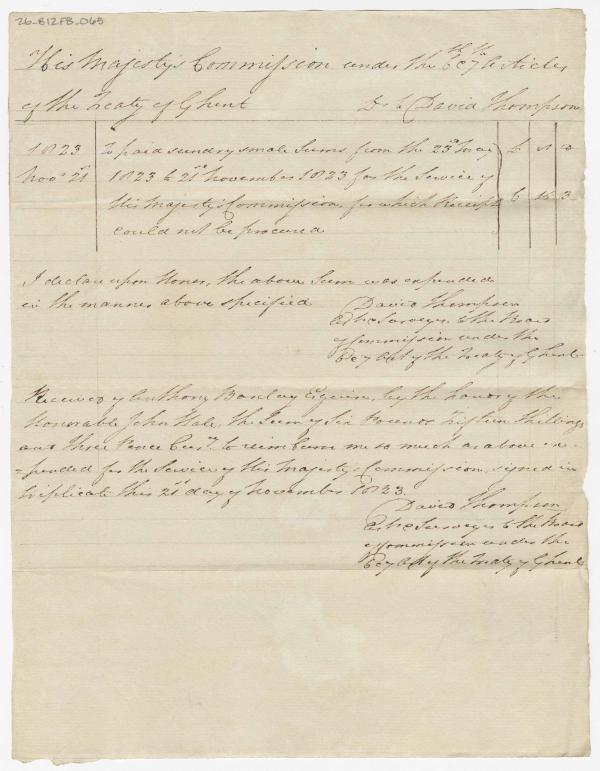 26-812FB-065
His Majestys Commission under the 6th & 7th Articles
of the Treaty of Ghent Dr to David Thompson
1823 To paid sundry small Sums from the 23rd May £ s d
Novr 21st 1823 to 21st November 1823 for the Service of
His Majesty's Commission, for which Receipts 6 15 3
could not be procured
I declare upon Honor, the above Sum was expended
in the manner above specified
David Thompson
Astr & Surveyor to the Board
of Commission under the
6 & 7 Art of the Treaty of Ghent
Received of Anthony Barclay Esquire, by the hands of the
Honorable John Hale, the Sum of Six Pounds Fifteen Shillings
and Three Pence Curcy to reimburse me so much as above ex-
=pended for the Service of His Majesty's Commission, signed in
triplicate this 21st day of November 1823.
David Thompson
Astr & Surveyor to the Board
of Commission under the
6 & 7 Art of the Treaty of Ghent